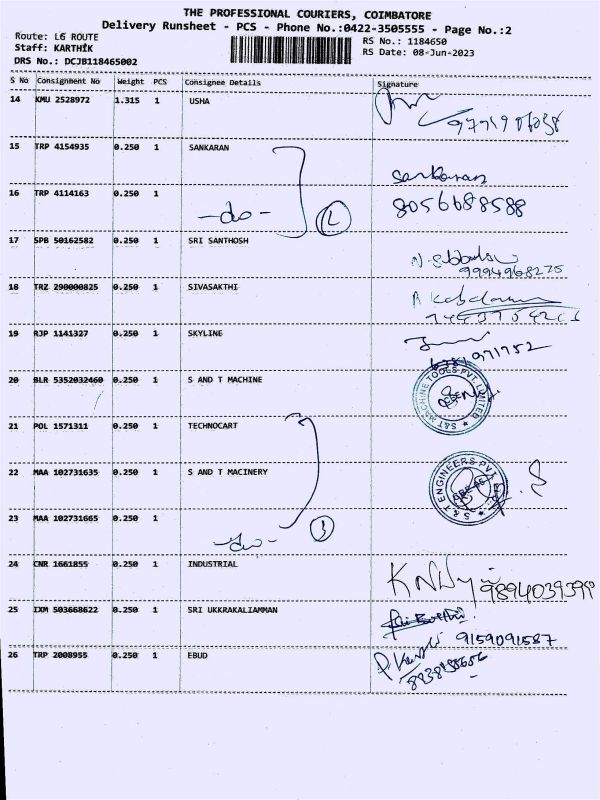 THE PROFESSIONAL COURIERS, COIMBATORE
Delivery Runsheet - PCS - Phone No.:0422-3505555 - Page No.:2
Route: L6 ROUTE
Staff: KARTHIK
DRS No.: DCJB118465002
RS No.: 1184650
RS Date: 08-Jun-2023
S No Consignment No Weight PCS Consignee Details Signature
14 KMU 2528972 1.315 1 USHA
15 TRP 4154935 0.250 1 SANKARAN Sankaran
16 TRP 4114163 0.250 1 -do- 8056688588
17 SPB 50162582 0.250 1 SRI SANTHOSH
9994968275
18 TRZ 290000825 0.250 1 SIVASAKTHI
19 RJP 1141327 0.250 1 SKYLINE
20 BLR 5352032460 0.250 1 S AND T MACHINE
S&T MACHINE TOOLS PVT. LIMITED
21 POL 1571311 0.250 1 TECHNOCART
22 MAA 102731635 0.250 1 S AND T MACINERY
S & T ENGINEERS PVT.
23 MAA 102731665 0.250 1 -do-
24 CNR 1661855 0.250 1 INDUSTRIAL
9894039399
25 IXM 503668622 0.250 1 SRI UKKRAKALIAMMAN
9159091587
26 TRP 2008955 0.250 1 EBUD